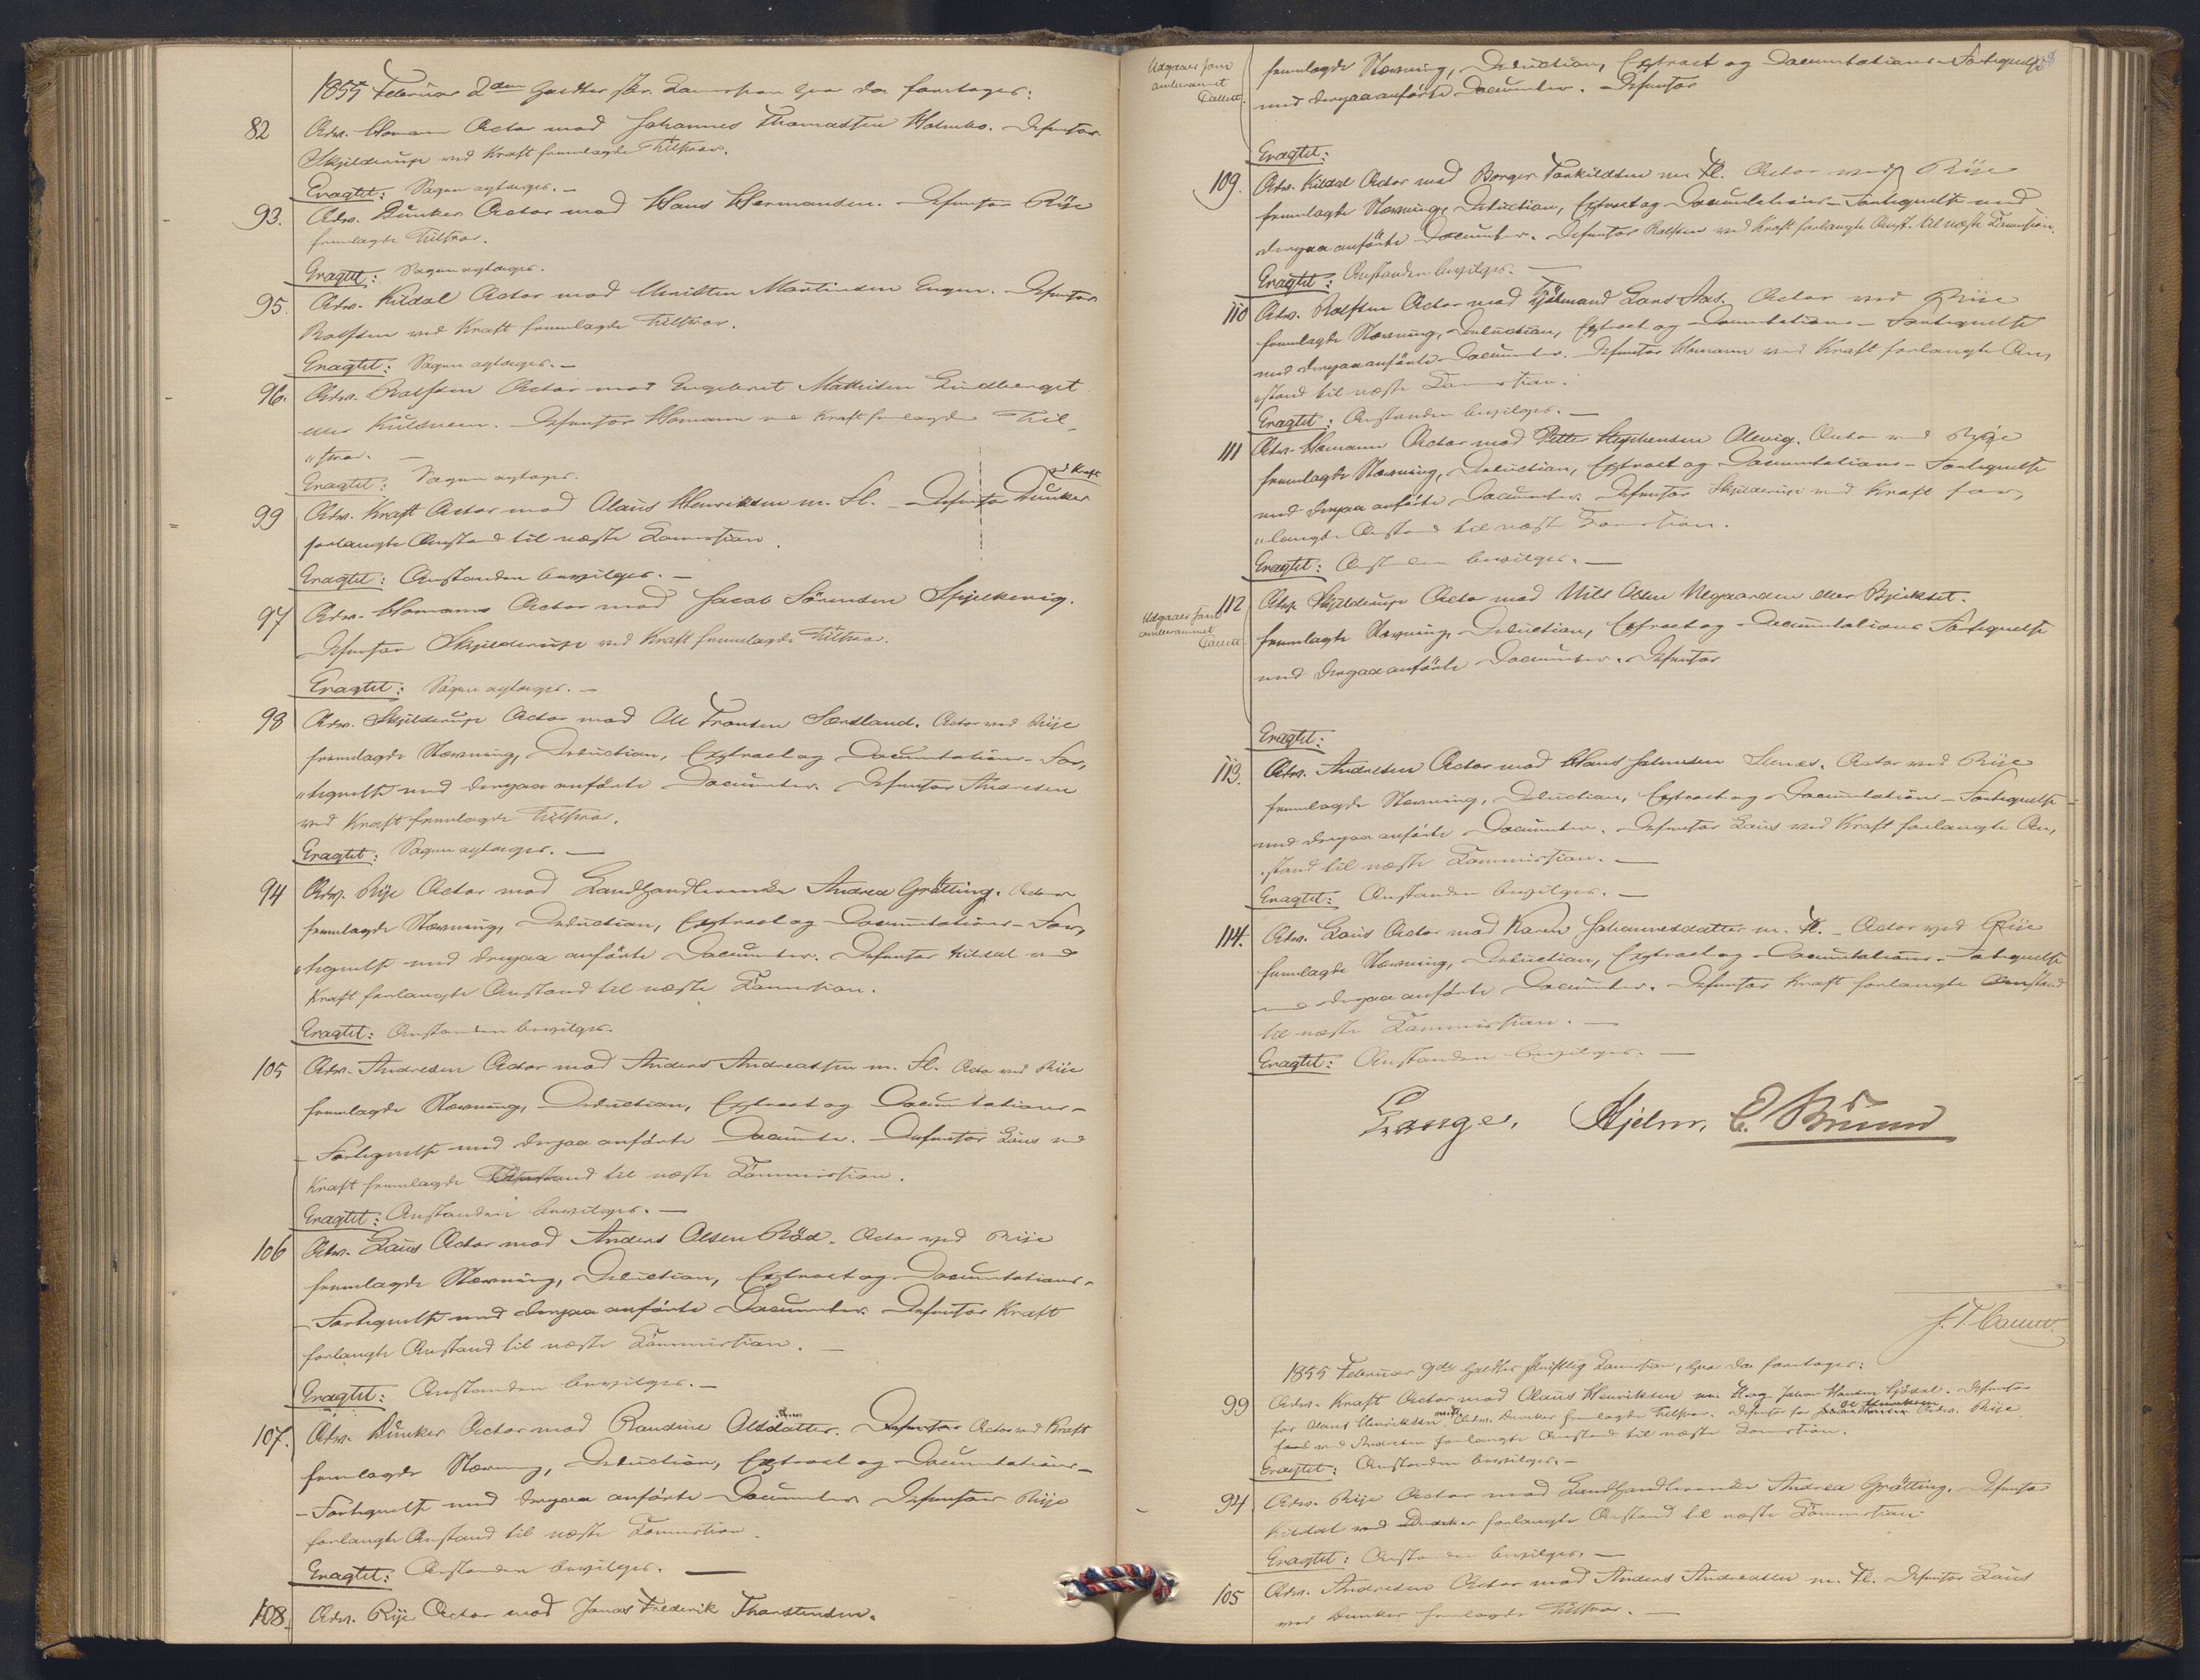 1855 Februar 2den holdtes skr. Kommission hvor da foretages:
82 Adv. Homann Actor mod Johannes Thomassen Holmbo. Defensor
Skjelderup ved Kraft fremlagde Tilsvar.
Eragtet: Sagen optages. –
93. Adv. Dunker Actor mod Hans Hermansen. Defensor Rije
fremlagde Tilsvar.
Eragtet: Sagen optages.
95. Adv. Kildal Actor mod Christen Martinsen Engen. Defensor
Rolfsen ved Kraft fremlagde Tilsvar.
Eragtet: Sagen optages. –
96. Adv. Rolfsen Actor mod Engebret Mathisen Lindberget
eller Kulsveen. Defensor Homann ved Kraft fremlagde Til-
„svar. –
Eragtet: Sagen optages.
99 Adv. Kraft Actor mod Olaus Henriksen m. Fl. – Defensor Dunker ved Kraft
forlangte Anstand til næste Kommission.
Eragtet: Anstanden bevilges. –
97 Adv. Homann Actor mod Jacob Sörensen Spjelkevig.
Defensor Skjelderup ved Kraft fremlagde Tilsvar.
Eragtet: Sagen optages. –
98 Adv. Skjelderup Actor mod Ole Fransen Sørsland. Actor ved Rije
fremlagde Stævning, Deduction, Extract og Documentations-For,
„tegnelse med derpaa anförte Documenter. Defensor Andresen
ved Kraft fremlagde Tilsvar.
Eragtet: Sagen optages. –
94 Adv. Rije Actor mod Landhandlerende Andrea Grötting. Actor
fremlagde Stævning, Deduction, Extract og Documentations-For,
„tegnelse med derpaa anförte Documenter. Defensor Kildal ved
Kraft forlangte Anstand til næste Kommission.
Eragtet: Anstanden bevilges.
105 Adv. Andresen Actor mod Anders Andreassen m. Fl. Actor ved Rije
fremlagde Stævning, Deduction, Extract og Documentations-
Fortegnelse med derpaa anförte Documenter. Defensor Laus ved
Kraft fremlagde Anstand til næste Kommission.
Eragtet: Anstanden bevilges. –
106 Adv. Laus Actor mod Anders Olsen Röd. Actor ved Rije
fremlagde Stævning, Deduction, Extract og Documentations-
Fortegnelse med derpaa anförte Documenter. Defensor Kraft
forlangte Anstand til næste Kommission. –
Eragtet: Anstanden bevilges. –
107. Adv. Dunker Actor mod Randine Olsdatter. Defensor Actor ved Kraft
fremlagde Stævning, Deduction, Extract og Documentations-
Fortegnelse med derpaa anförte Documenter. Defensor Rije
forlangte Anstand til næste Kommission.
Eragtet: Anstanden bevilges. –
108. Adv. Rije Actor mod Jonas Frederik Thorstensen.
Udgaaer som
omberammet
fremlagde Stævning, Deduction, Extract og Documentations-Fortegnelse
med derpaa anförte Documenter. Defensor
Eragtet:
109. Adv. Kildal Actor mod Borger Torkildsen m. Fl. Actor ved Rije
fremlagde Stævning, Deduction, Extract og Documentations-Fortegnelse med
derpaa anförte Documenter. Defensor Rolfsen ved Kraft forlangte Anst. til næste Kommission.
Eragtet: Anstanden bevilges. –
110 Adv. Rolfsen Actor mod Lars Aas. Actor ved Rije
fremlagde Stævning, Deduction, Extract og Documentations-Fortegnelse
med derpaa anförte Documenter. Defensor Homann ved Kraft forlangte An,
„stand til næste Kommission.
Eragtet: Anstanden bevilges. –
111 Adv. Homann Actor mod Petter Stephensen Olevig. Actor ved Rije
fremlagde Stævning, Deduction, Extract og Documentations-Fortegnelse
med derpaa anförte Documenter. Defensor Skjelderup ved Kraft for,
„langte Anstand til næste Kommission.
Eragtet: Anstanden bevilges. –
Udgaaer som
omberammet
112 Adv. Skjelderup Actor mod Nils Olsen Nygaarden eller Bjerkset.
fremlagde Stævning, Deduction, Extract og Documentations Fortegnelse
med derpaa anförte Documenter. Defensor
Eragtet:
113. Adv. Andresen Actor mod Hans Johnsen Stenæs. Actor ved Rije
fremlagde Stævning, Deduction, Extract og Documentations-Fortegnelse
med derpaa anförte Documenter. Defensor Laus ved Kraft forlangte An,
„stand til næste Kommission. –
Eragtet: Anstanden bevilges. –
114. Adv. Laus Actor mod Karen Johannesdatter m. Fl. – Actor ved Rije
fremlagde Stævning, Deduction, Extract og Documentations-Fortegnelse
med derpaa anförte Documenter. Defensor Kraft forlangte Anstand
til næste Kommission. –
Eragtet: Anstanden bevilges. –
Lange. Hjelm. E. Bruun
1855 Februar 9de holdtes skriftlig Kommission, hvor da foretages:
99 Adv. Kraft Actor mod Olaus Henriksen m. Defensor
for Olaus Henriksen Adv. Dunker fremlagde Tilsvar. Defensor for Adv. Rije
ved Andresen forlangte Anstand til næste Kommission.
Eragtet: Anstanden bevilges. –
94 Adv. Rije Actor mod Landhandlerende Andrea Grötting. Defensor
Kildal ved Dunker forlangte Anstand til næste Kommission
Eragtet: Anstanden bevilges. –
105 Adv. Andresen Actor mod Anders Andreassen m. Fl. Defensor Laus
ved Dunker fremlagde Tilsvar. –